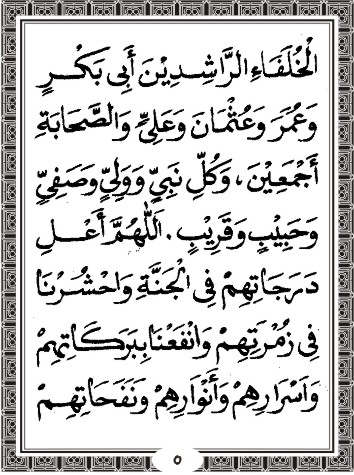 الْخُلَفَاءِ الرَّاشِدِيْنَ أَبِى بَكْرٍ
وَعُمَرَ وَعُثْمَانَ وَعَلِيٍّ وَالصَّحَابَةِ
أَجْمَعِيْنَ، وَكُلِّ نَبِيٍّ وَوَلِيٍّ وَصَفِيٍّ
وَحَبِيْبٍ وَقَرِيْبٍ. اَللّٰهُمَّ أَعْلِ
دَرَجَاتِهِمْ فِى الْجَنَّةِ وَاحْشُرْنَا
فِى زُمْرَتِهِمْ وَانْفَعْنَا بِبَرَكَاتِهِمْ
وَاَسْرَارِهِمْ وَأَنْوَارِهِمْ وَنَفَحَاتِهِمْ
٥